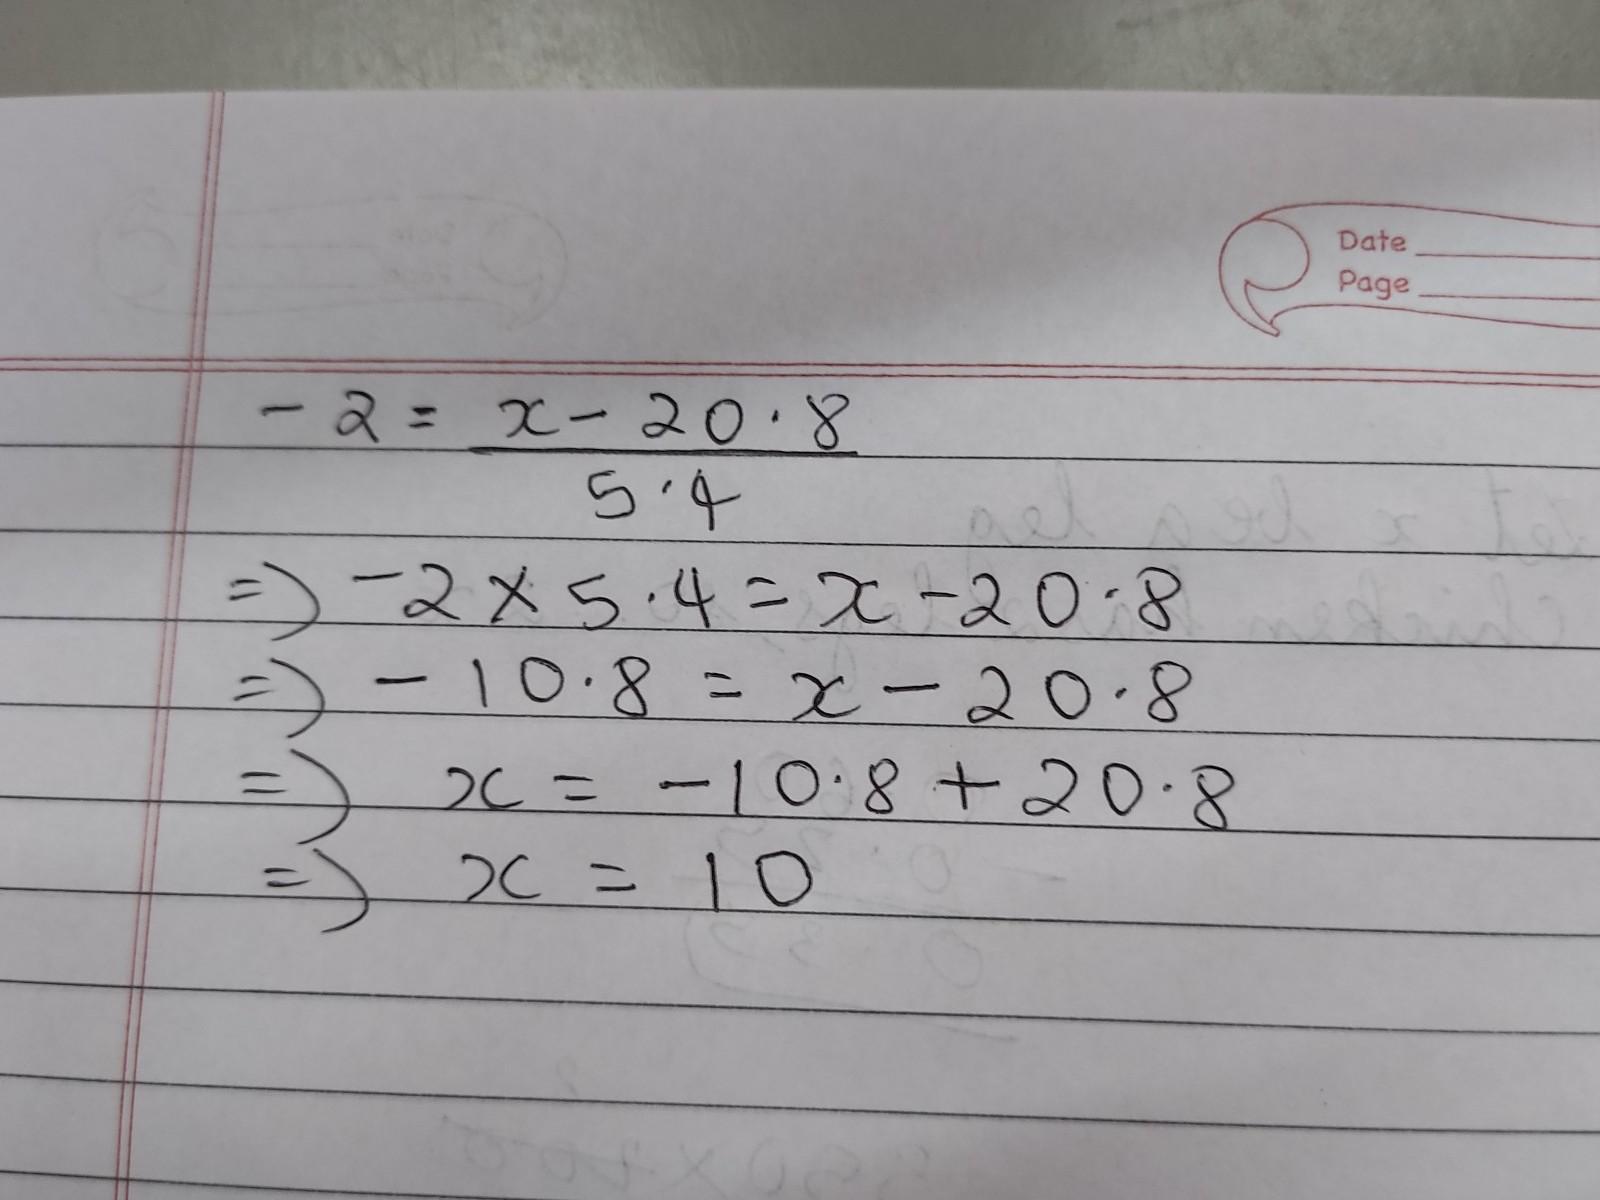 Date
Page
-2 = x - 20.8
5.4
=> -2 x 5.4 = x - 20.8
=> -10.8 = x - 20.8
=> x = -10.8 + 20.8
=> x = 10